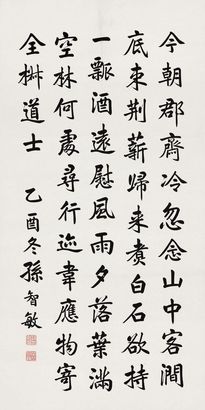 今朝郡齋冷忽念山中客澗
底束荆薪歸来煮白石欲持
一瓢酒遠慰風雨夕落葉滿
空林何處尋行迹韋應物寄
全椒道士 乙酉冬孫智敏